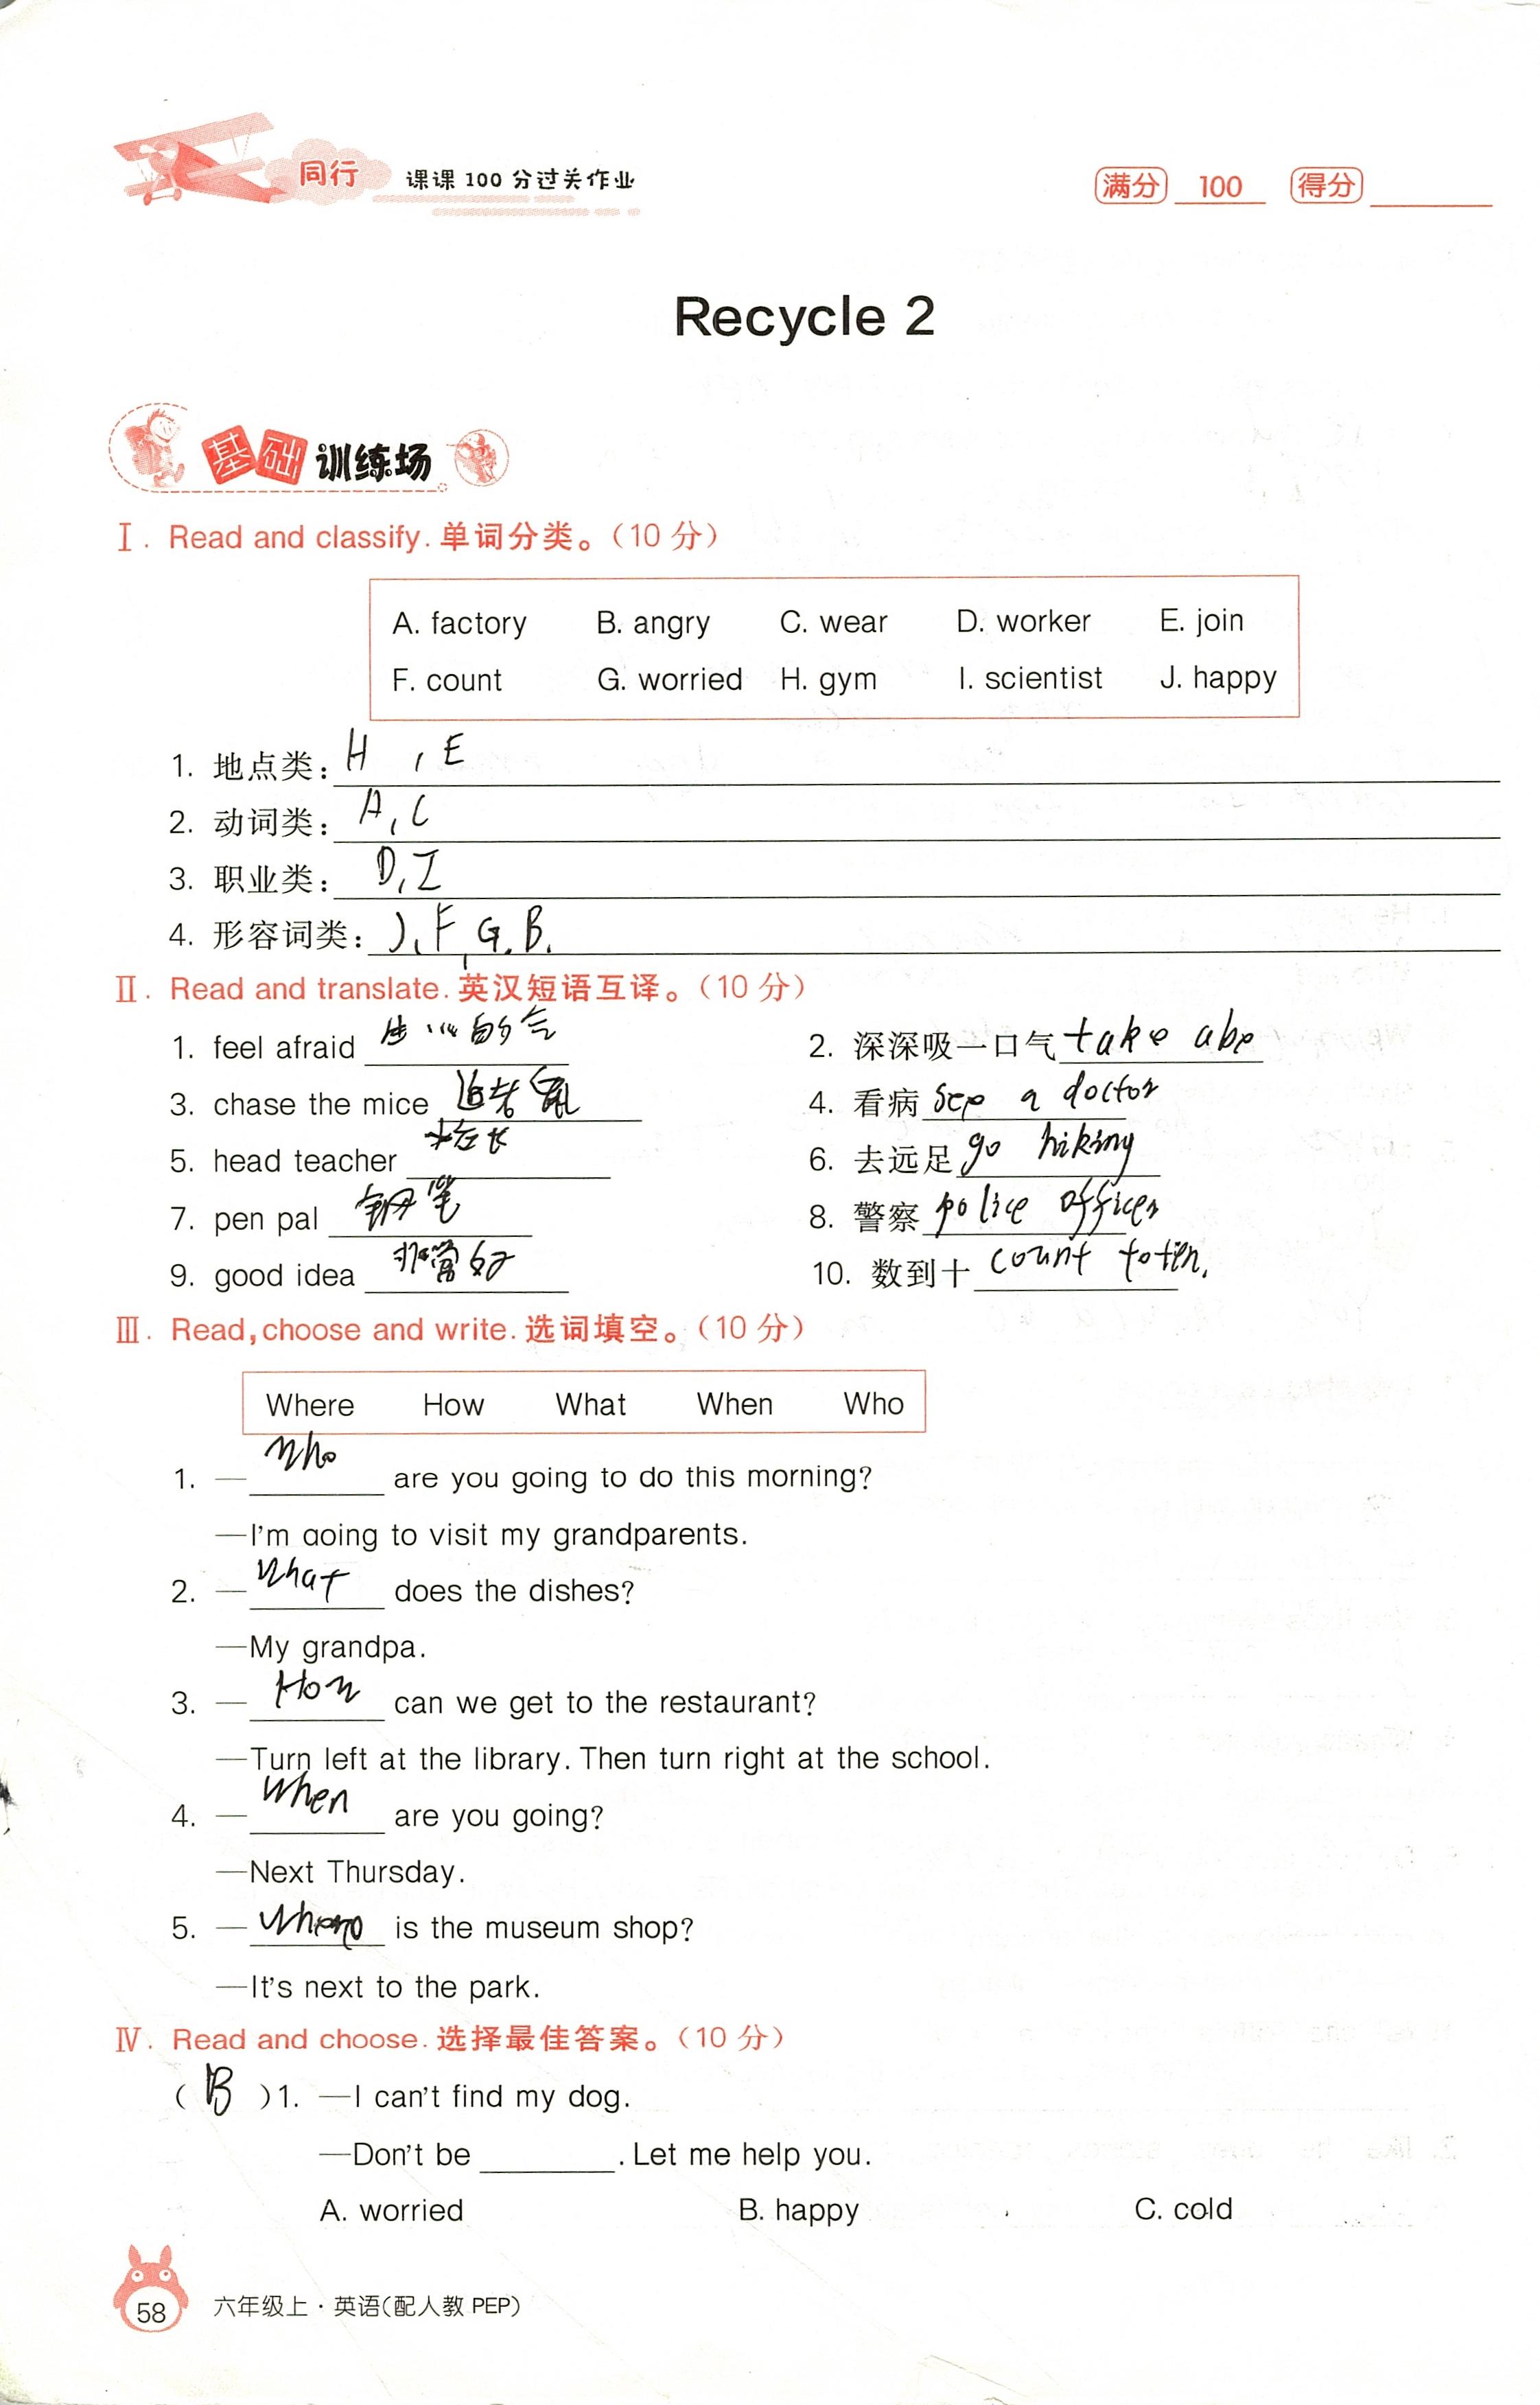 同行 课课100分过关作业 满分 100 得分
Recycle 2
基础训练场
Ⅰ. Read and classify. 单词分类。(10分)
A. factory B. angry C. wear D. worker E. join
F. count G. worried H. gym I. scientist J. happy
1. 地点类: H , E
2. 动词类: A, C
3. 职业类: D, I
4. 形容词类: J, F, G. B.
Ⅱ. Read and translate. 英汉短语互译。(10分)
1. feel afraid 2. 深深吸一口气 take abe
3. chase the mice 追着 4. 看病 see a doctor
5. head teacher 6. 去远足 go hiking
7. pen pal 钢笔 8. 警察 police officer
9. good idea 非常好 10. 数到十 count to ten.
Ⅲ. Read, choose and write. 选词填空。(10分)
Where How What When Who
1. — Who are you going to do this morning?
—I'm going to visit my grandparents.
2. — What does the dishes?
—My grandpa.
3. — How can we get to the restaurant?
—Turn left at the library. Then turn right at the school.
4. — When are you going?
—Next Thursday.
5. — is the museum shop?
—It's next to the park.
Ⅳ. Read and choose. 选择最佳答案。(10分)
( B )1. —I can't find my dog.
—Don't be ________. Let me help you.
A. worried B. happy C. cold
58 六年级上·英语(配人教PEP)